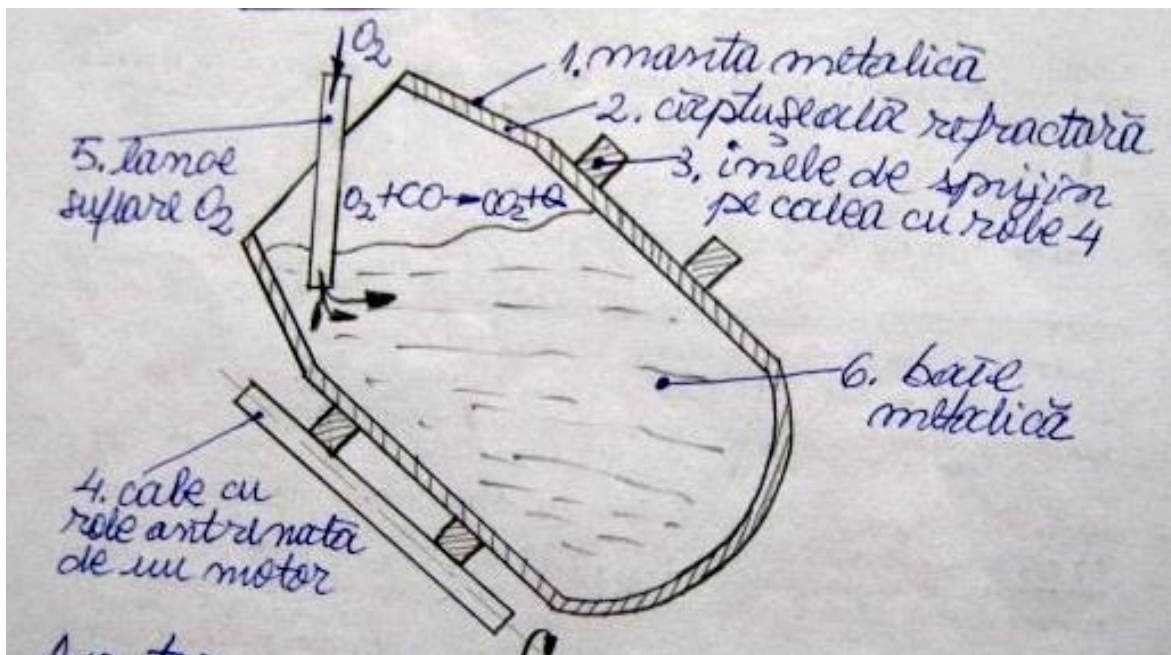 O₂
1. manta metalică
2. căptuseală refractară
3. inele de sprijin
pe calea cu role 4
5. lance
suflare O₂
O₂+CO→CO₂+Q
6. baie
metalică
4. cale cu
role antrenată
de un motor